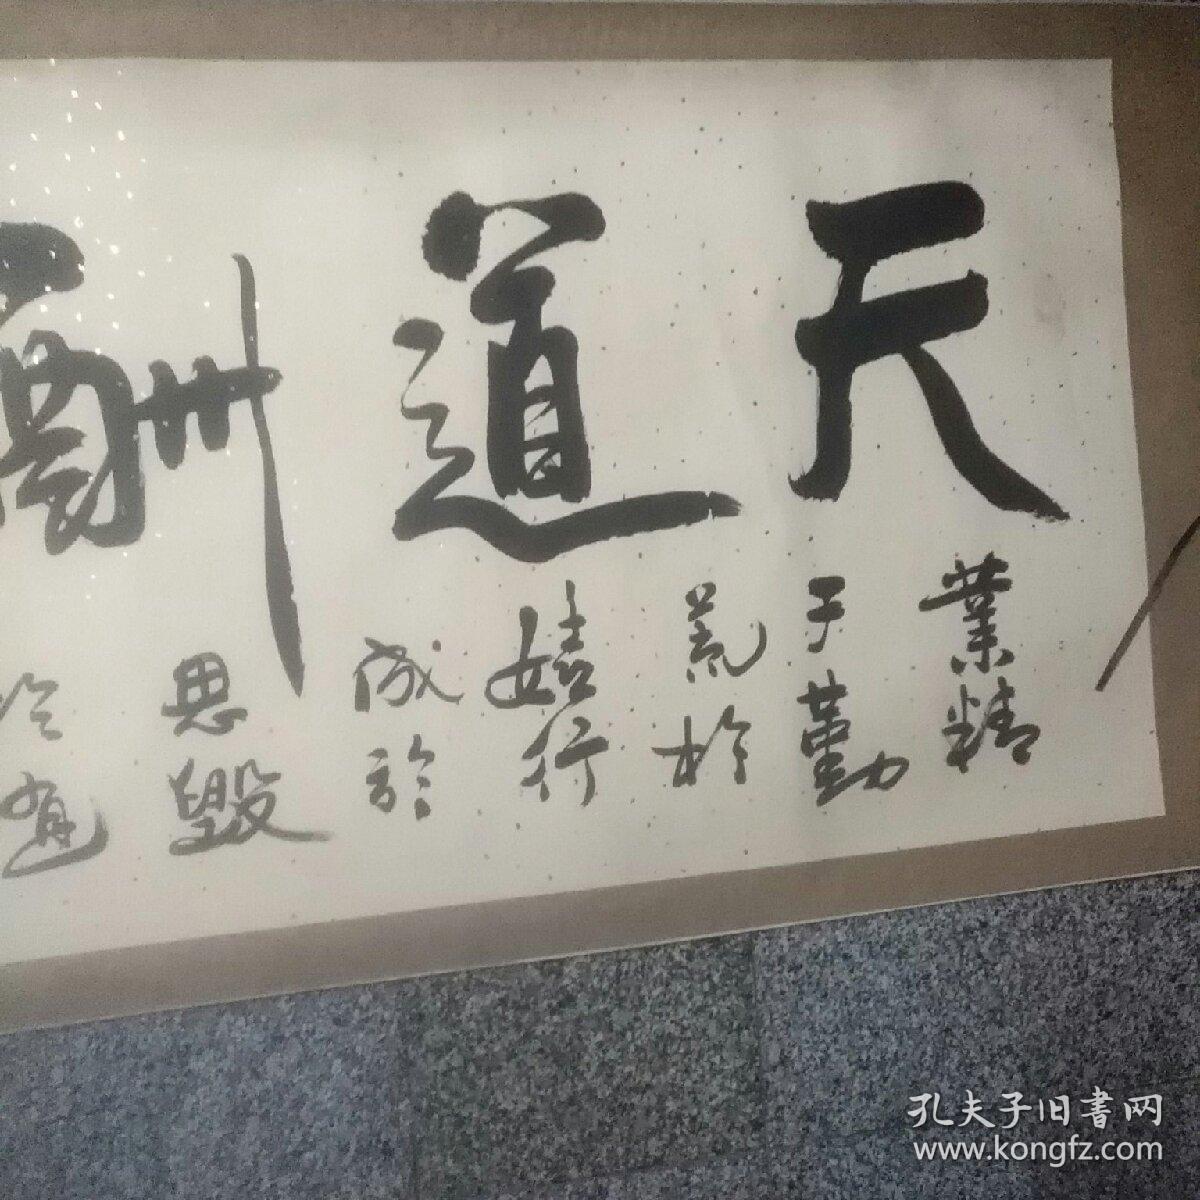 天道酬
業精
于勤
荒於
嬉行
成於
思毀
孔夫子旧書网
www.kongfz.com